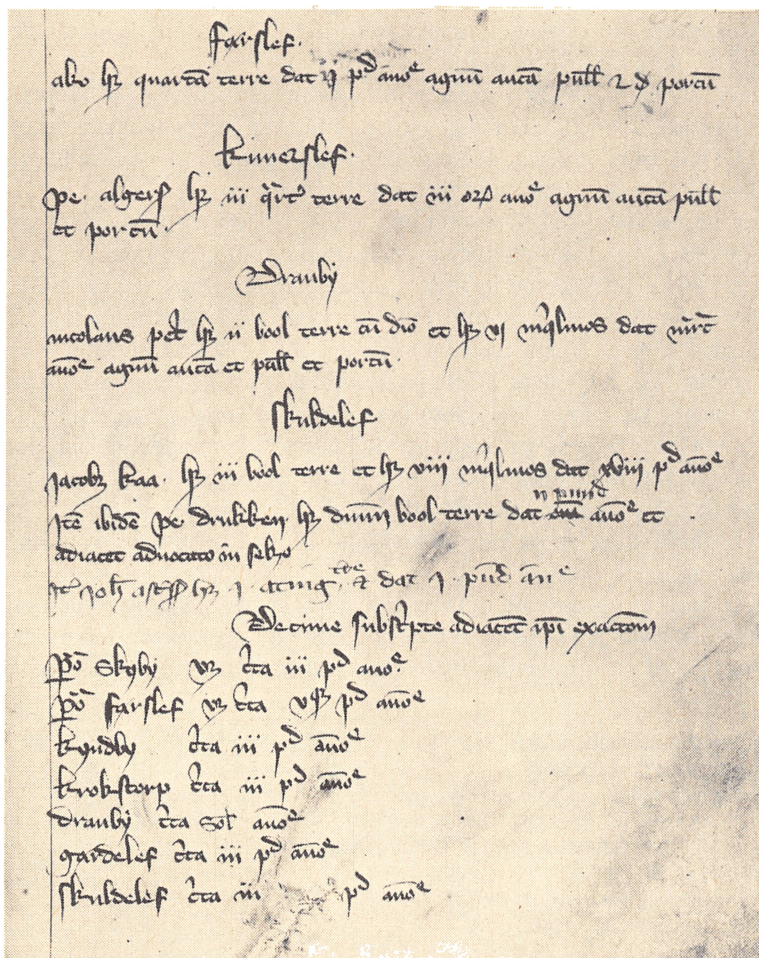 Farslef.
abo hȝ quartā terre dat ij pd anōe agnū aucā pull ⁊ d porcū
kirnerslef.
pe. algerſ hȝ iii qrt terre dat iii or anōe agnū aucā pull
et porcū
Drauby
nicolaus pet hȝ ii bool terre cū diō et hȝ vi inqlinos dat mrc
anōe agnū aucā et pull et porcū
skuldelef
Jacobȝ kaa. hȝ iii bool terre et hȝ viii inqlinos dat xviii pd anōe
Itē ibidē pe drukken hȝ dimī bool terre dat ii pund anōe et
adiacet aduocato in
It Joh hȝ i. atting tre dat i. pūd āne
Decime subscrpte adiacēt ipi exactōni
Pō Skyby vȝ cta iii pd anōe
Pō farslef vȝ cta v pd anōe
kyndby cta iii pd anōe
krokstorp cta iii pd anōe
drauby cta sol anōe
gardelef cta iii pd anōe
skuldelef cta iii pd anōe